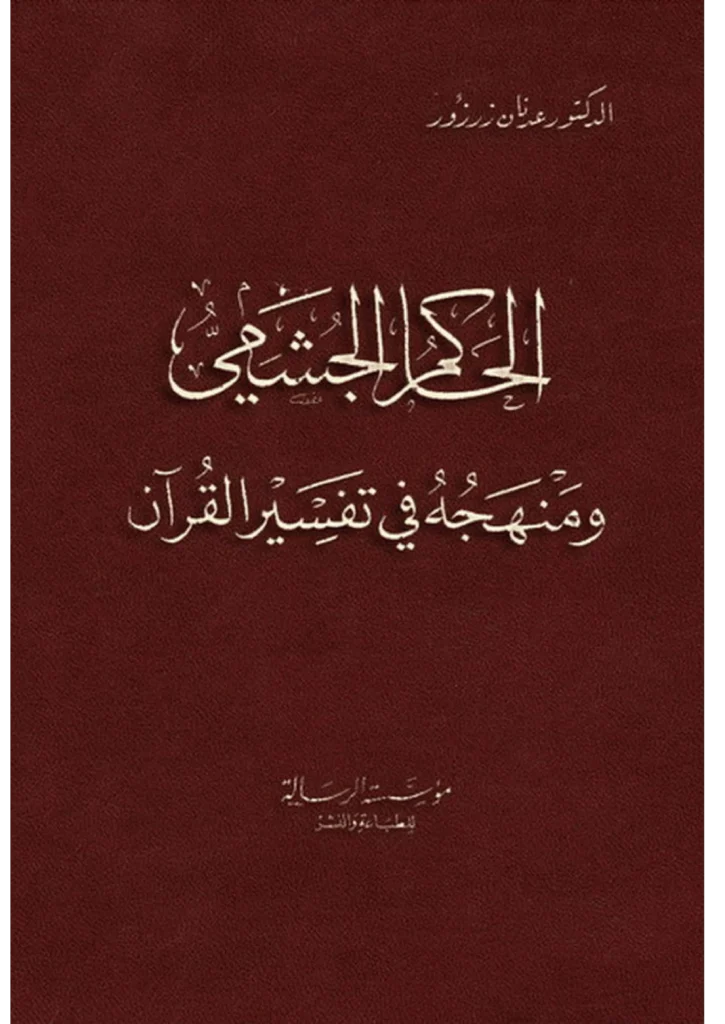 الدكتور عدنان زرزُور
الحَاكِمُ الجُشَمِيُّ
وَمَنْهَجُهُ فِي تَفْسِيْرِ القُرآن
مؤسَّسَة الرسَالة
للطبَاعَةِ وَالنشْر